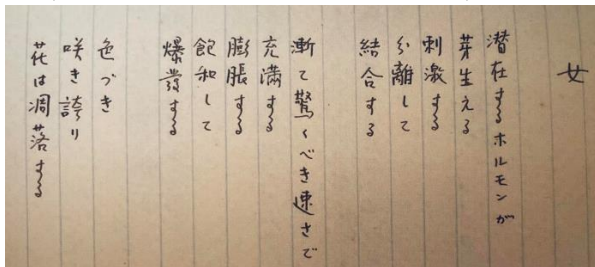 女
潜在するホルモンが
芽生える
刺激する
分離して
結合する
漸て驚くべき速さで
充満する
膨脹する
飽和して
爆發する
色づき
咲き誇り
花は凋落する